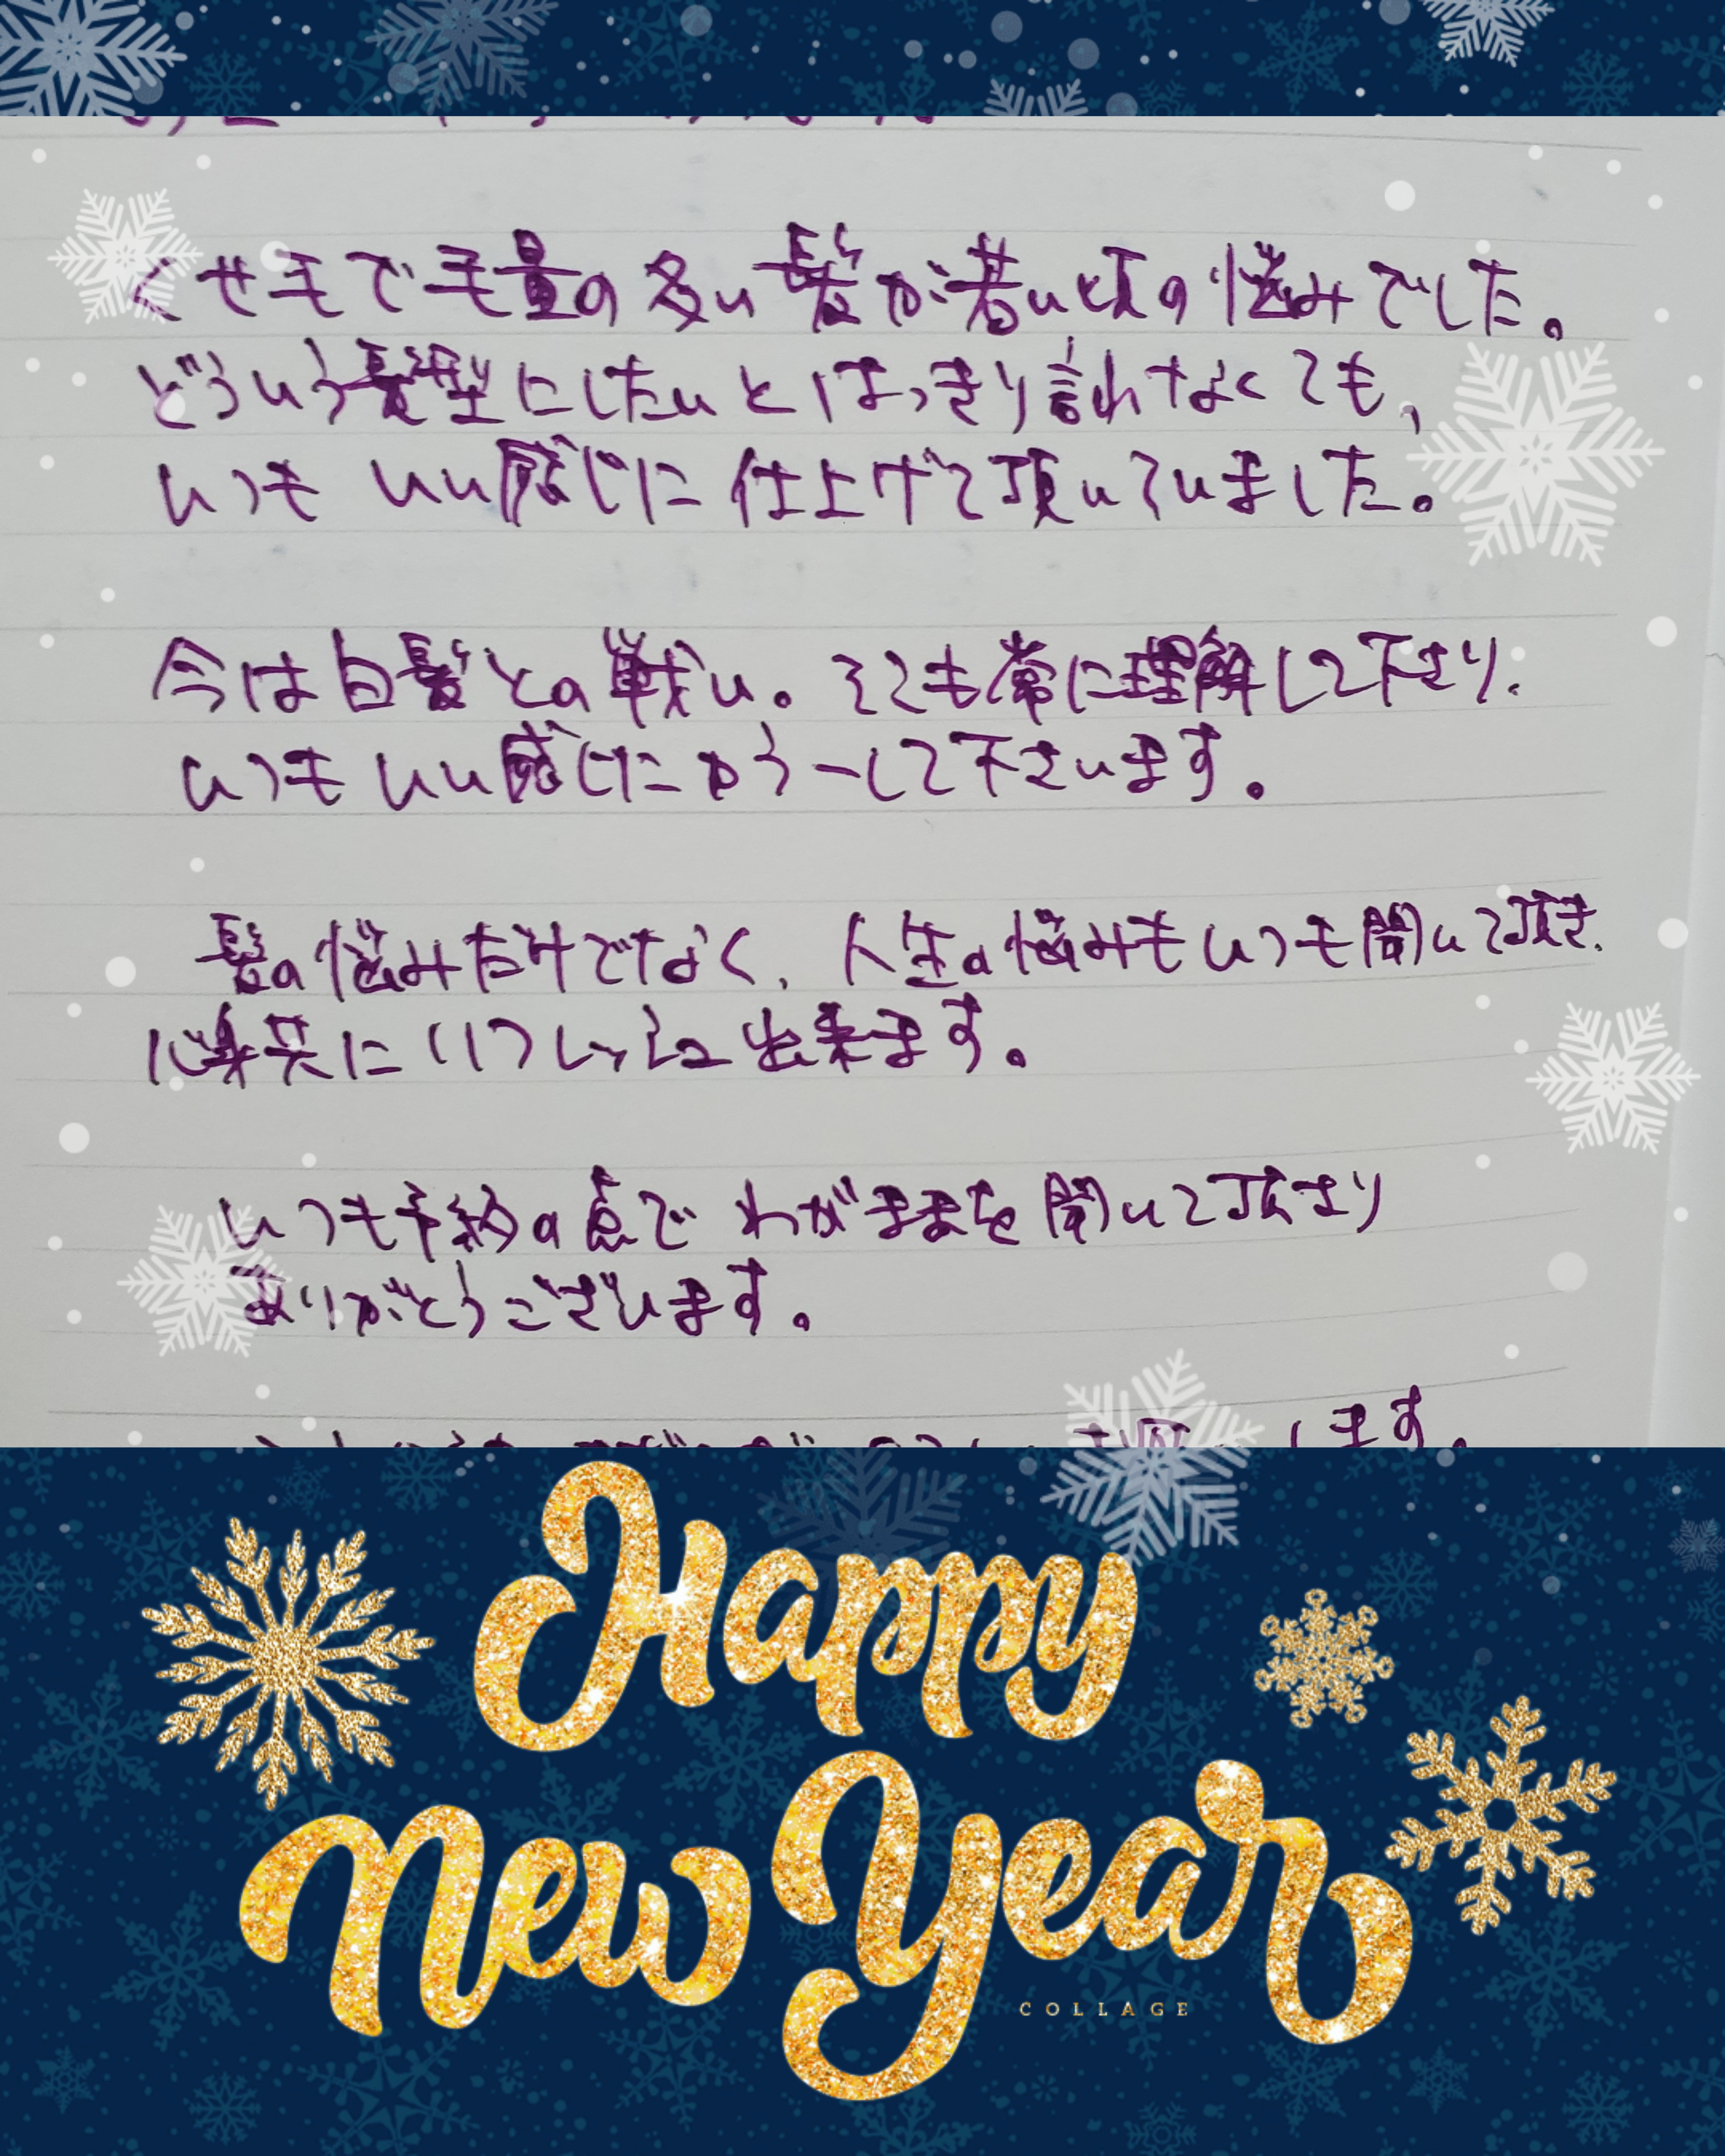 くせ毛で毛量の多い髪が若い頃の悩みでした。
どういう髪型にしたいとはっきり言れなくても、
いつも いい感じに 仕上げて頂いていました。
今は白髪との戦い。そこも常に理解して下さり、
いつも いい感じにカラーして下さいます。
髪の悩みだけでなく、人生の悩みもいつも聞いて頂き、
心身共にリフレッシュ出来ます。
いつも予約の点で わがままを聞いて下さり
ありがとうございます。
します。
Happy
New Year
COLLAGE